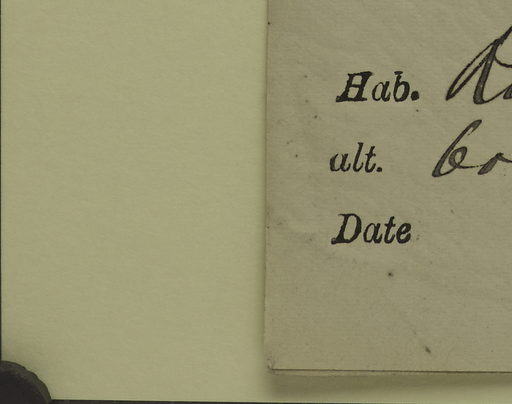 Hab.
alt. 60
Date